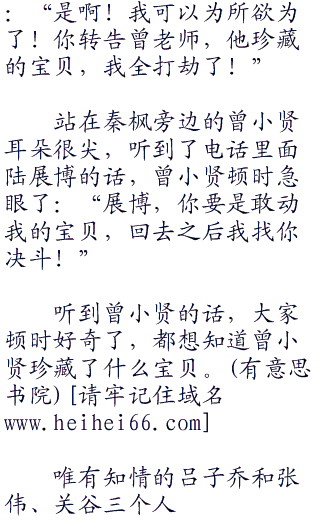 ：“是啊！我可以为所欲为
了！你转告曾老师，他珍藏
的宝贝，我全打劫了！”
站在秦枫旁边的曾小贤
耳朵很尖，听到了电话里面
陆展博的话，曾小贤顿时急
眼了：“展博，你要是敢动
我的宝贝，回去之后我找你
决斗！”
听到曾小贤的话，大家
顿时好奇了，都想知道曾小
贤珍藏了什么宝贝。(有意思
书院) [请牢记住域名
www.heihei66.com]
唯有知情的吕子乔和张
伟、关谷三个人